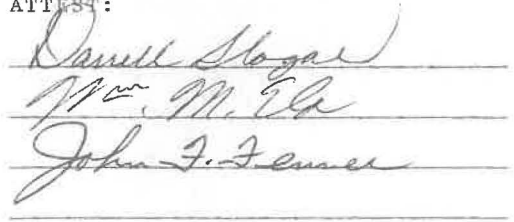 ATTEST:
Darrell Slogar
Wm. M.
John F. Fenner